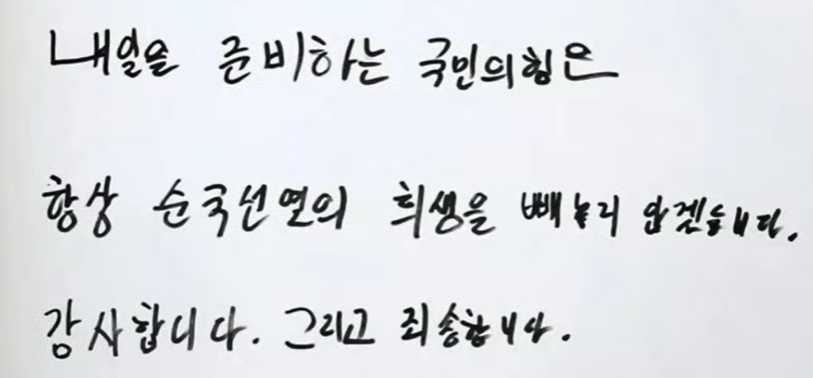 내일을 준비하는 국민의힘은
항상 순국선열의 희생을 빼놓지 않겠습니다.
감사합니다. 그리고 죄송합니다.